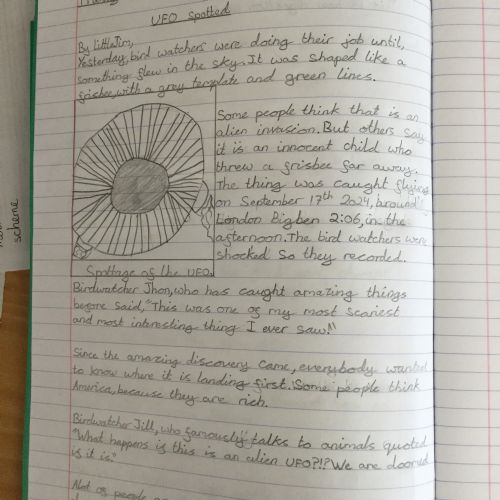 UFO Spotted
By Little Jim,
Yesterday, bird watchers were doing their job until,
something flew in the sky. It was shaped like a
frisbee, with a grey template and green lines.
Some people think that is an
alien invasion. But others say
it is an innocent child who
threw a frisbee far away.
The thing was caught flying
on September 17th 2024, around
London Bigben 2:06, in the
afternoon. The bird watchers were
shocked so they recorded.
Spottage of the UFO.
Birdwatcher Jhon, who has caught amazing things
before said, "This was one of my most scariest
and most interesting thing I ever saw!"
Since the amazing discovery came, everybody wanted
to know where it is landing first. Some people think
America, because they are rich.
Birdwatcher Jill, who famously talks to animals quoted
"What happens if this is an alien UFO?!? We are doomed
if it is."
Alot of people
scheme